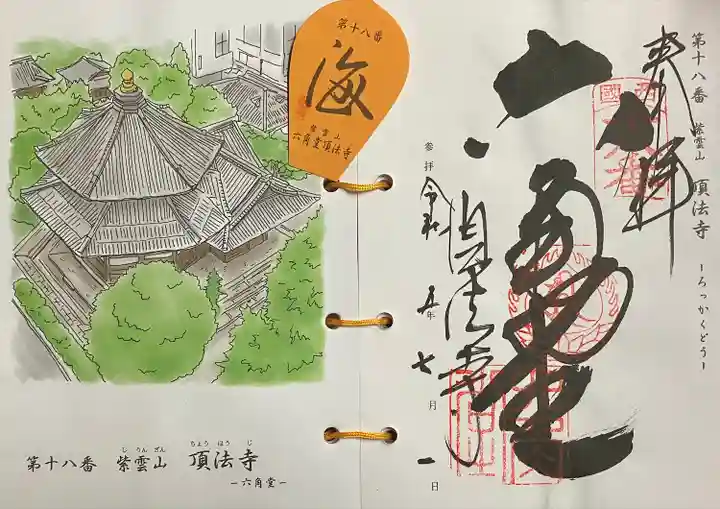 第十八番
海
紫雲山
六角堂頂法寺
し うん ざん ちょう ほう じ
第十八番 紫雲山 頂法寺
-六角堂-
第十八番 紫雲山 頂法寺 -ろっかくどう-
奉拝
六角堂
頂法寺
参拝 令和 五年 七月 一日